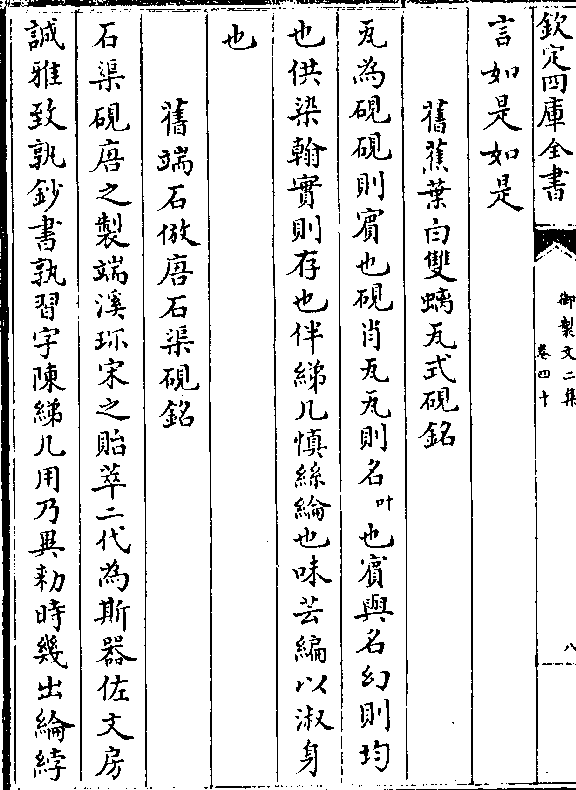 欽定四庫全書
御製文二集
卷四十
八
言如是如是
舊蕉葉白雙螭瓦式硯銘
瓦為硯硯則賓也硯肖瓦瓦則名叶也賓與名幻則均
也供染翰實則存也伴綈几慎絲綸也味芸編以淑身
也
舊端石倣唐石渠硯銘
石渠硯唐之製端溪珎宋之貽萃二代為斯器佐文房
誠雅致孰鈔書孰習字陳綈几用乃異勅時幾出綸綍